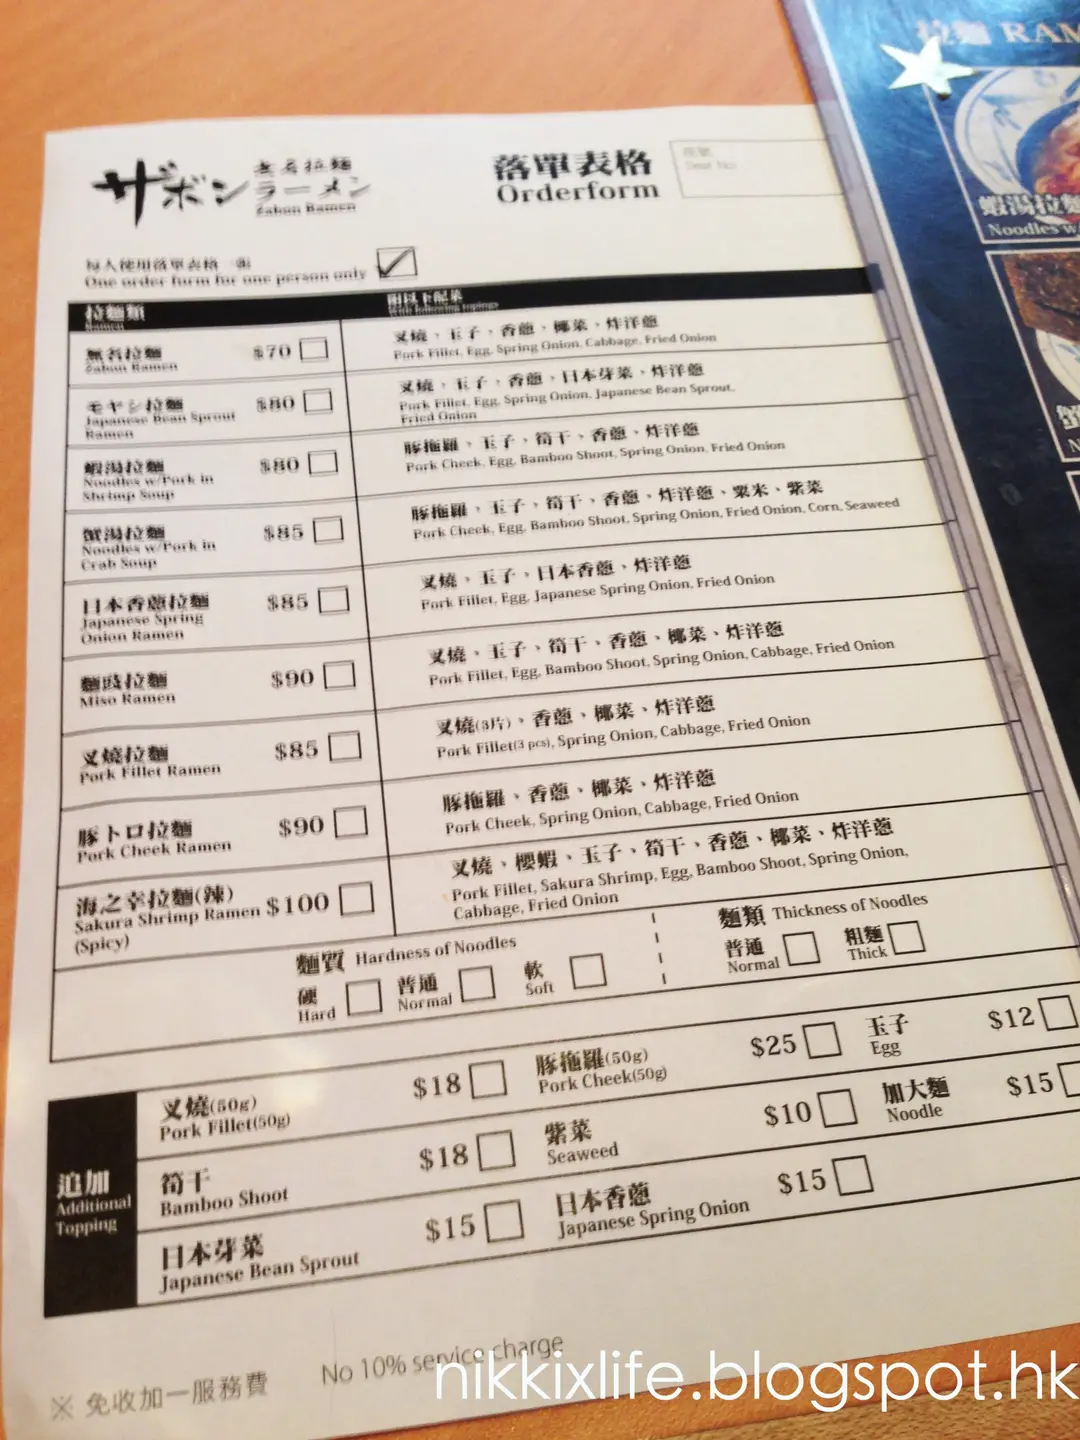 拉麵 RAM
ザボン 無名拉麵
ラーメン
Zabon Ramen
落單表格
Orderform
座號
Seat No
每人使用落單表格一張
One order form for one person only
拉麵類
Ramen
附以下配菜
With following topings
無名拉麵 $70
Zabon Ramen
叉燒，玉子，香蔥，椰菜，炸洋蔥
Pork Fillet, Egg, Spring Onion, Cabbage, Fried Onion
モヤシ拉麵 $80
Japanese Bean Sprout
Ramen
叉燒，玉子，香蔥，日本芽菜，炸洋蔥
Pork Fillet, Egg, Spring Onion, Japanese Bean Sprout,
Fried Onion
蝦湯拉麵 $80
Noodles w/Pork in
Shrimp Soup
豚拖羅，玉子，筍干，香蔥，炸洋蔥
Pork Cheek, Egg, Bamboo Shoot, Spring Onion, Fried Onion
蟹湯拉麵 $85
Noodles w/Pork in
Crab Soup
豚拖羅，玉子，筍干、香蔥，炸洋蔥、粟米、紫菜
Pork Cheek, Egg, Bamboo Shoot, Spring Onion, Fried Onion, Corn, Seaweed
日本香蔥拉麵 $85
Japanese Spring
Onion Ramen
叉燒，玉子，日本香蔥、炸洋蔥
Pork Fillet, Egg, Japanese Spring Onion, Fried Onion
麵豉拉麵 $90
Miso Ramen
叉燒、玉子、筍干、香蔥、椰菜、炸洋蔥
Pork Fillet, Egg, Bamboo Shoot, Spring Onion, Cabbage, Fried Onion
叉燒拉麵 $85
Pork Fillet Ramen
叉燒(3片)、香蔥、椰菜、炸洋蔥
Pork Fillet(3 pcs), Spring Onion, Cabbage, Fried Onion
豚トロ拉麵 $90
Pork Cheek Ramen
豚拖羅、香蔥、椰菜、炸洋蔥
Pork Cheek, Spring Onion, Cabbage, Fried Onion
海之幸拉麵(辣)
Sakura Shrimp Ramen $100
(Spicy)
叉燒、櫻蝦、玉子、筍干、香蔥、椰菜、炸洋蔥
Pork Fillet, Sakura Shrimp, Egg, Bamboo Shoot, Spring Onion,
Cabbage, Fried Onion
麵質 Hardness of Noodles
硬 普通 軟
Hard Normal Soft
麵類 Thickness of Noodles
普通 粗麵
Normal Thick
追加
Additional
Topping
叉燒(50g) $18
Pork Fillet(50g)
豚拖羅(50g) $25
Pork Cheek(50g)
玉子 $12
Egg
筍干 $18
Bamboo Shoot
紫菜 $10
Seaweed
加大麵 $15
Noodle
日本芽菜 $15
Japanese Bean Sprout
日本香蔥 $15
Japanese Spring Onion
※ 免收加一服務費 No 10% service charge
蝦湯拉麵
Noodles w/
蟹
nikkixlife.blogspot.hk